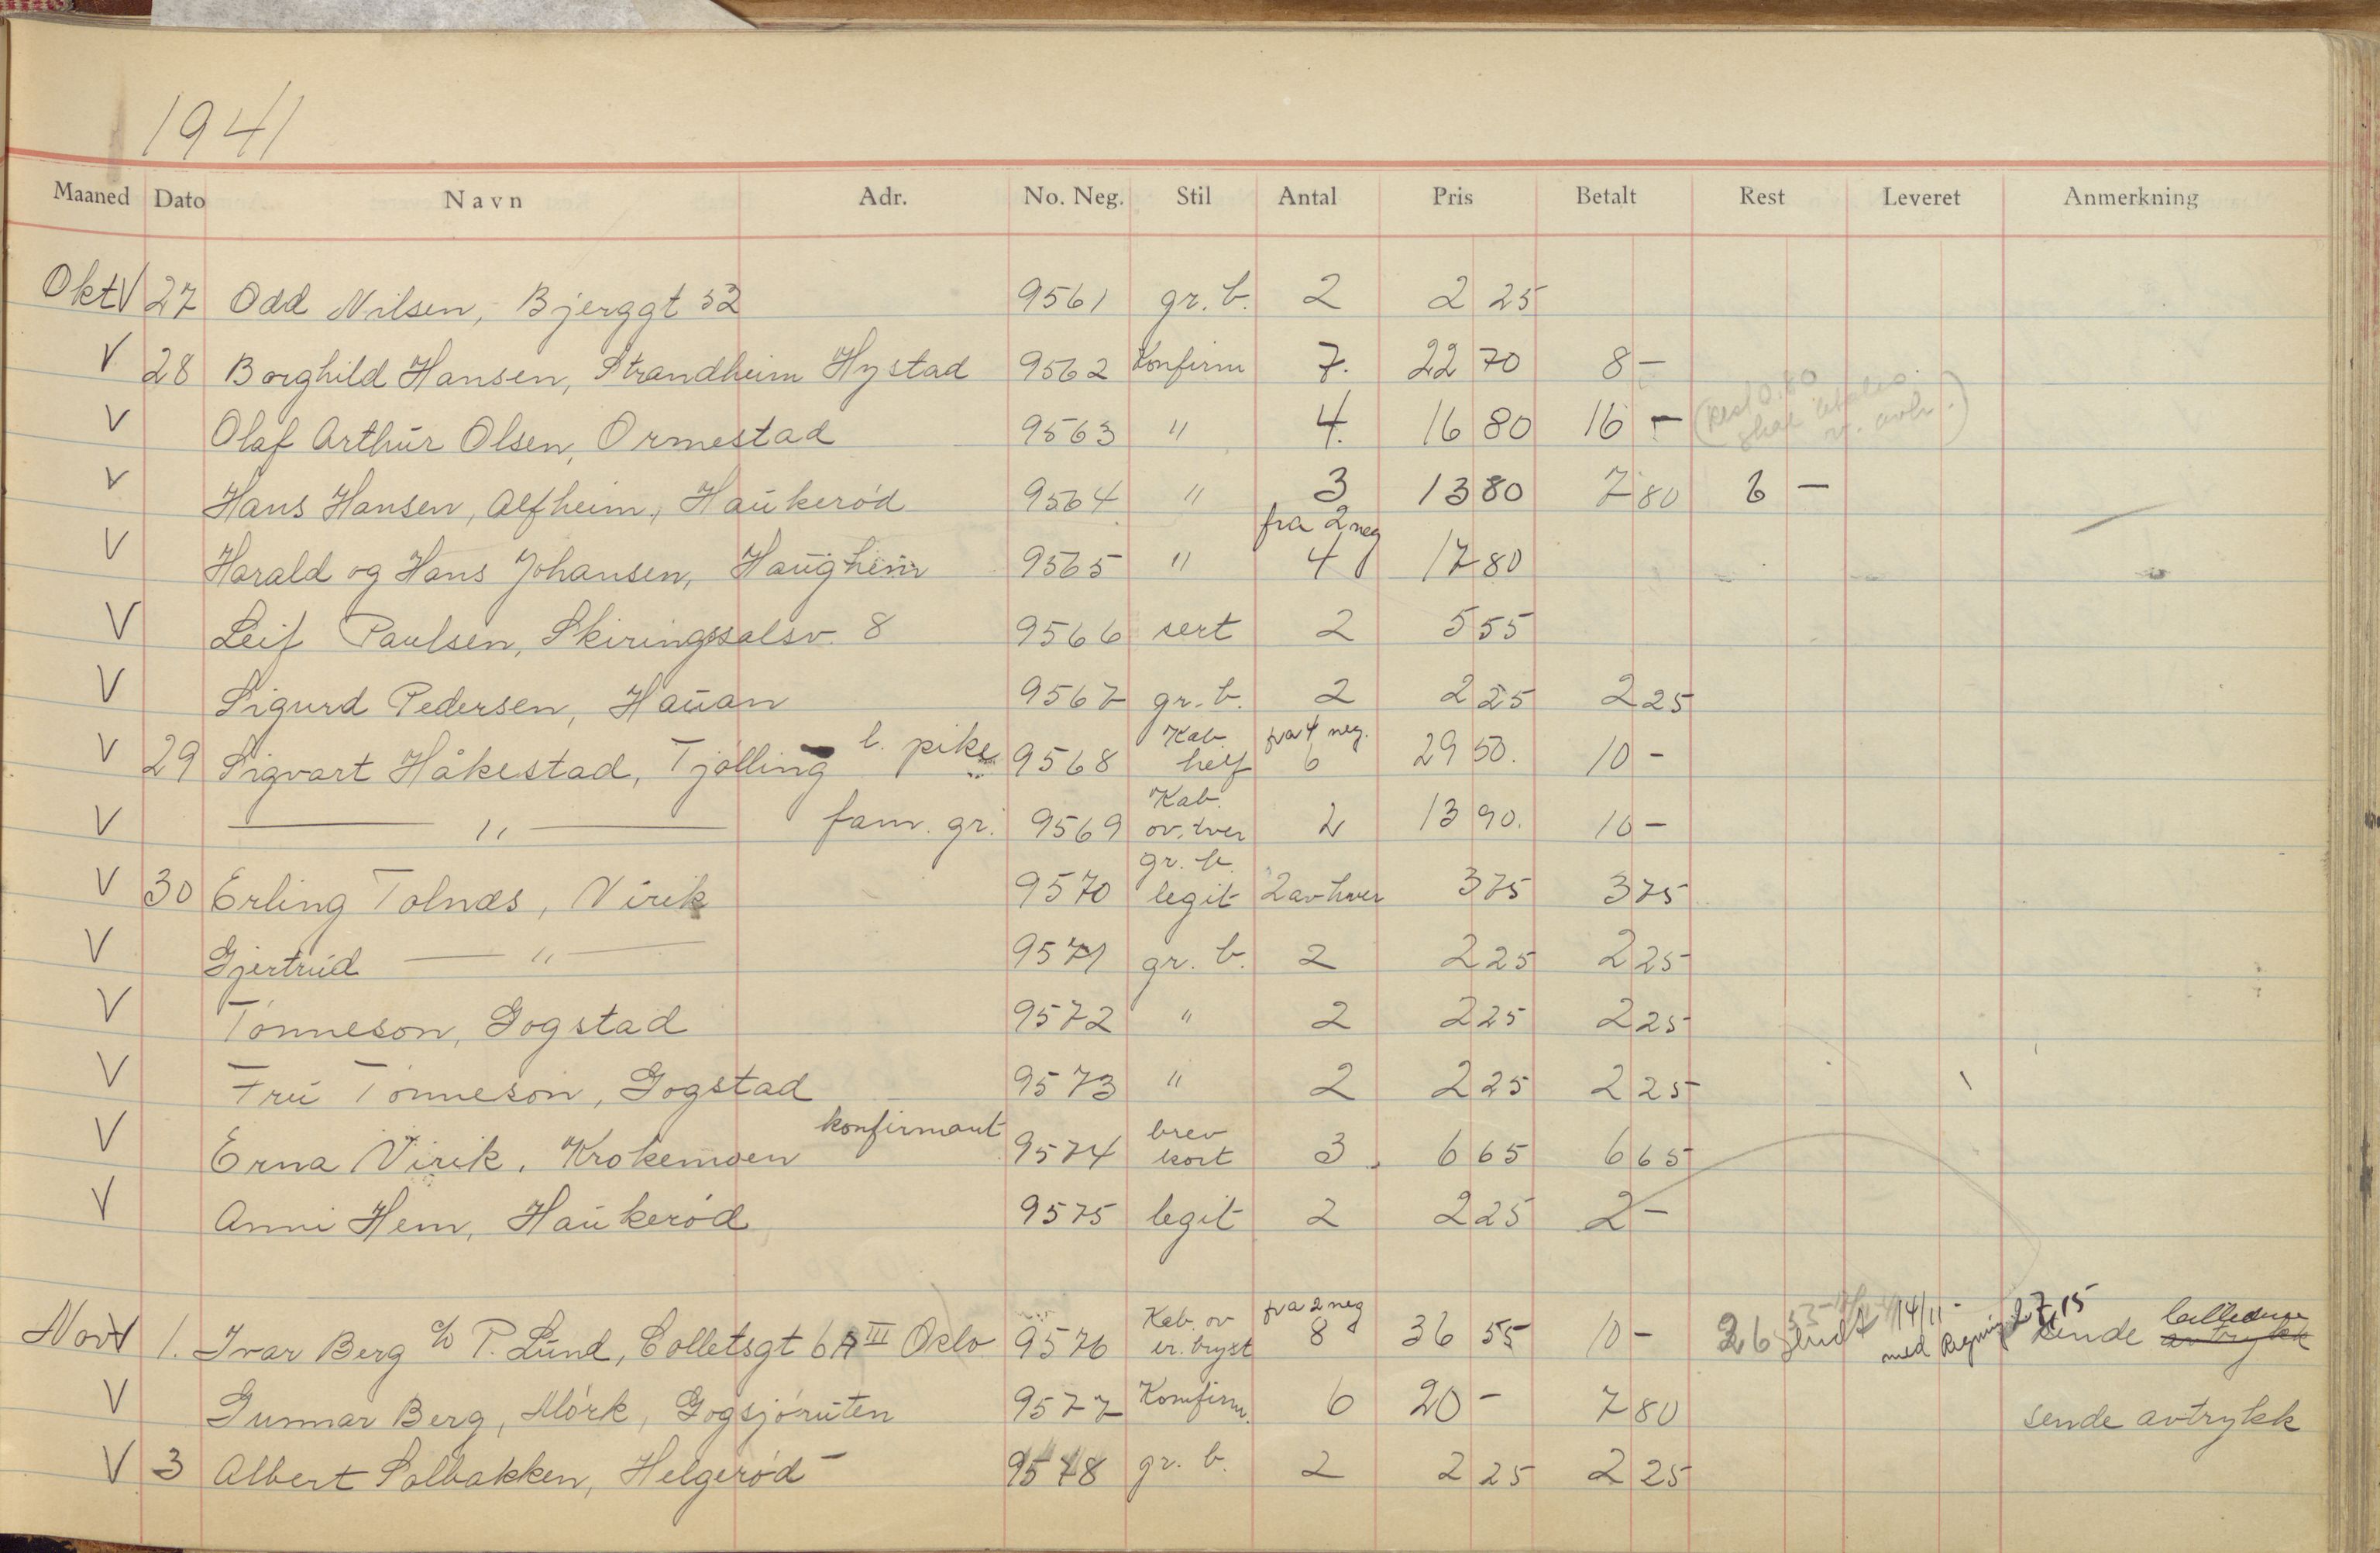 1941
Maaned Dato Navn Adr. No. Neg. Stil Antal Pris Betalt Rest Leveret Anmerkning
Okt V 27 Odd Nilsen, Bjerggt 32 9561 gr. b. 2 2 25
V 28 Borghild Hansen, Strandheim Hystad 9562 Konfirm 7. 22 70 8 -
V Olaf Arthur Olsen, Ormestad 9563 " 4. 16 80 16 - (Rest 0.80
skal betales
v. avh.)
V Hans Hansen, Alfheim, Haukerød 9564 " 3 13 80 7 80 6 -
fra 2 neg
V Harald og Hans Johansen, Haugheim 9565 " 4 17 80
V Leif Paulsen, Skiringssalsv. 8 9566 sert 2 5 55
V Sigurd Pedersen, Hauan 9567 gr. b. 2 2 25 2 25
Kab. fra 4 neg.
V 29 Sigvart Håkestad, Tjølling l. pike 9568 helf 6 29 50. 10 -
Kab.
V — " — fam. gr. 9569 ov. tver 2 13 90. 10 -
gr. b.
V 30 Erling Tolnæs, Virik 9570 legit 2 av hver 3 75 3 75
V Gjertrud — " — 9571 gr. b. 2 2 25 2 25
V Tønneson, Gogstad 9572 " 2 2 25 2 25
V Fru Tønneson, Gogstad 9573 " 2 2 25 2 25
konfirmant brev
V Erna Virik, Krokemoen 9574 kort 3. 6 65 6 65
V Anni Hem, Haukerød 9575 legit 2 2 25 2 -
Kab. ov fra 2 neg 14/11- 27,15 billedene
Nov V 1. Ivar Berg c/o P. Lund, Colletsgt 6A III Oslo 9576 er. bryst 8 36 55 10 - 26 med Regning sende avtrykk
V Gunnar Berg, Mørk, Gogsjøruten 9577 Konfirm. 6 20 - 7 80 sende avtrykk
V 3 Albert Solbakken, Helgerød - 9578 gr. b. 2 2 25 2 25